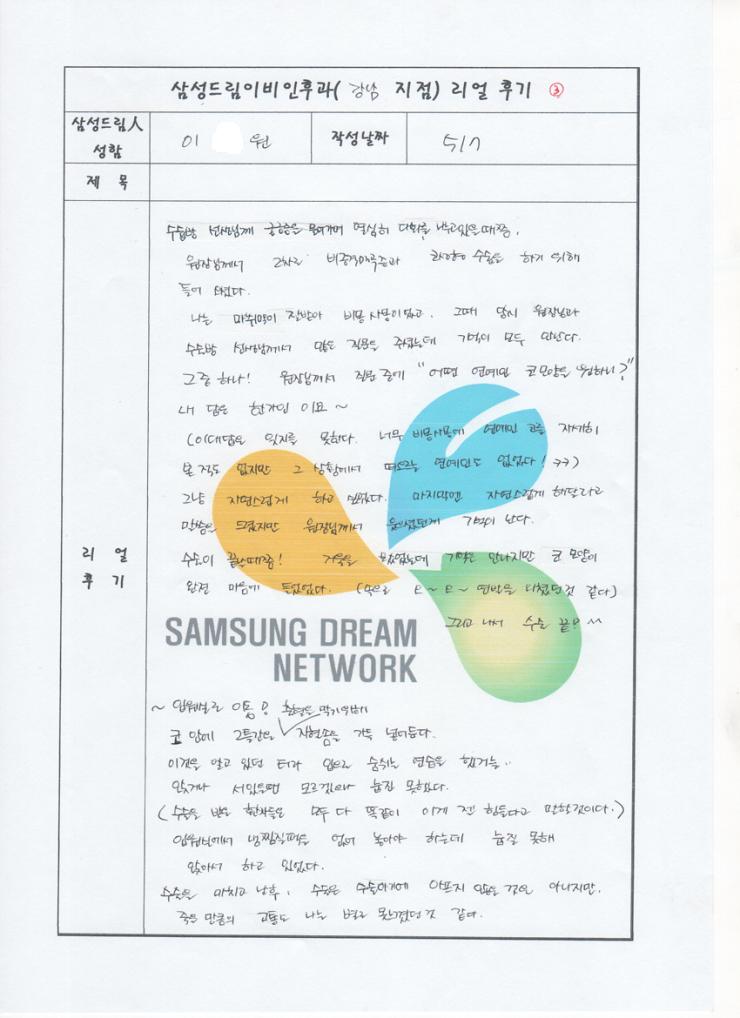 삼성드림이비인후과( 강남 지점) 리얼 후기 ③
삼성드림人 성함
이 원
작성날짜
5/7
제 목
리 얼 후 기
수술방 선생님께 궁금증을 물어가며 열심히 대화를 나누고 있을때쯤,
원장님께서 2차로 비중격만곡증과 화향 수술을 하기 위해
들어 오셨다.
나는 마취약이 잘받아 비몽사몽이었고, 그때 당시 원장님과
수술방 선생님께서 많은 질문을 주셨는데 기억이 모두 안난다.
그중 하나! 원장님께서 질문 중에 "어떤 연예인 코모양을 원하니?"
내 답은 한가인 이요 ~
(이대답은 잊지를 못한다. 너무 비몽사몽에 연예인 코를 자세히
본 적도 없지만 그 상황에서 떠오르는 연예인도 없었다! ㅋㅋ)
그냥 자연스럽게 하고 싶었다. 마지막엔 자연스럽게 해달라고
말씀을 드렸지만 원장님께서 웃으셨던게 기억이 난다.
수술이 끝날때쯤! 거울을 봤었는데 기억은 안나지만 코 모양이
완전 마음에 들었었다. (속으로 E~E~ 연발을 내쳤던것 같다)
그리고 나서 수술 끝! ^^
SAMSUNG DREAM
NETWORK
~ 입원실로 이동! 출혈을 막기위해
코 안에 2특간은 지혈솜을 가득 넣어둔다.
이것을 알고 있던 터라 입으로 숨쉬는 연습을 했거늘..
앉거나 서있을땐 모르겠으나 눕질 못하겠다.
(수술을 받은 환자들은 모두 다 똑같이 이게 젤 힘들다고 말할것이다.)
입원실에서 냉찜질팩을 얹어 놓아야 하는데 눕질 못해
앉아서 하고 있었다.
수술을 마치고 난후, 수술은 수술이기에 아프지 않은 것은 아니지만,
죽을 만큼의 고통도 나는 별로 못느꼈던것 같다.